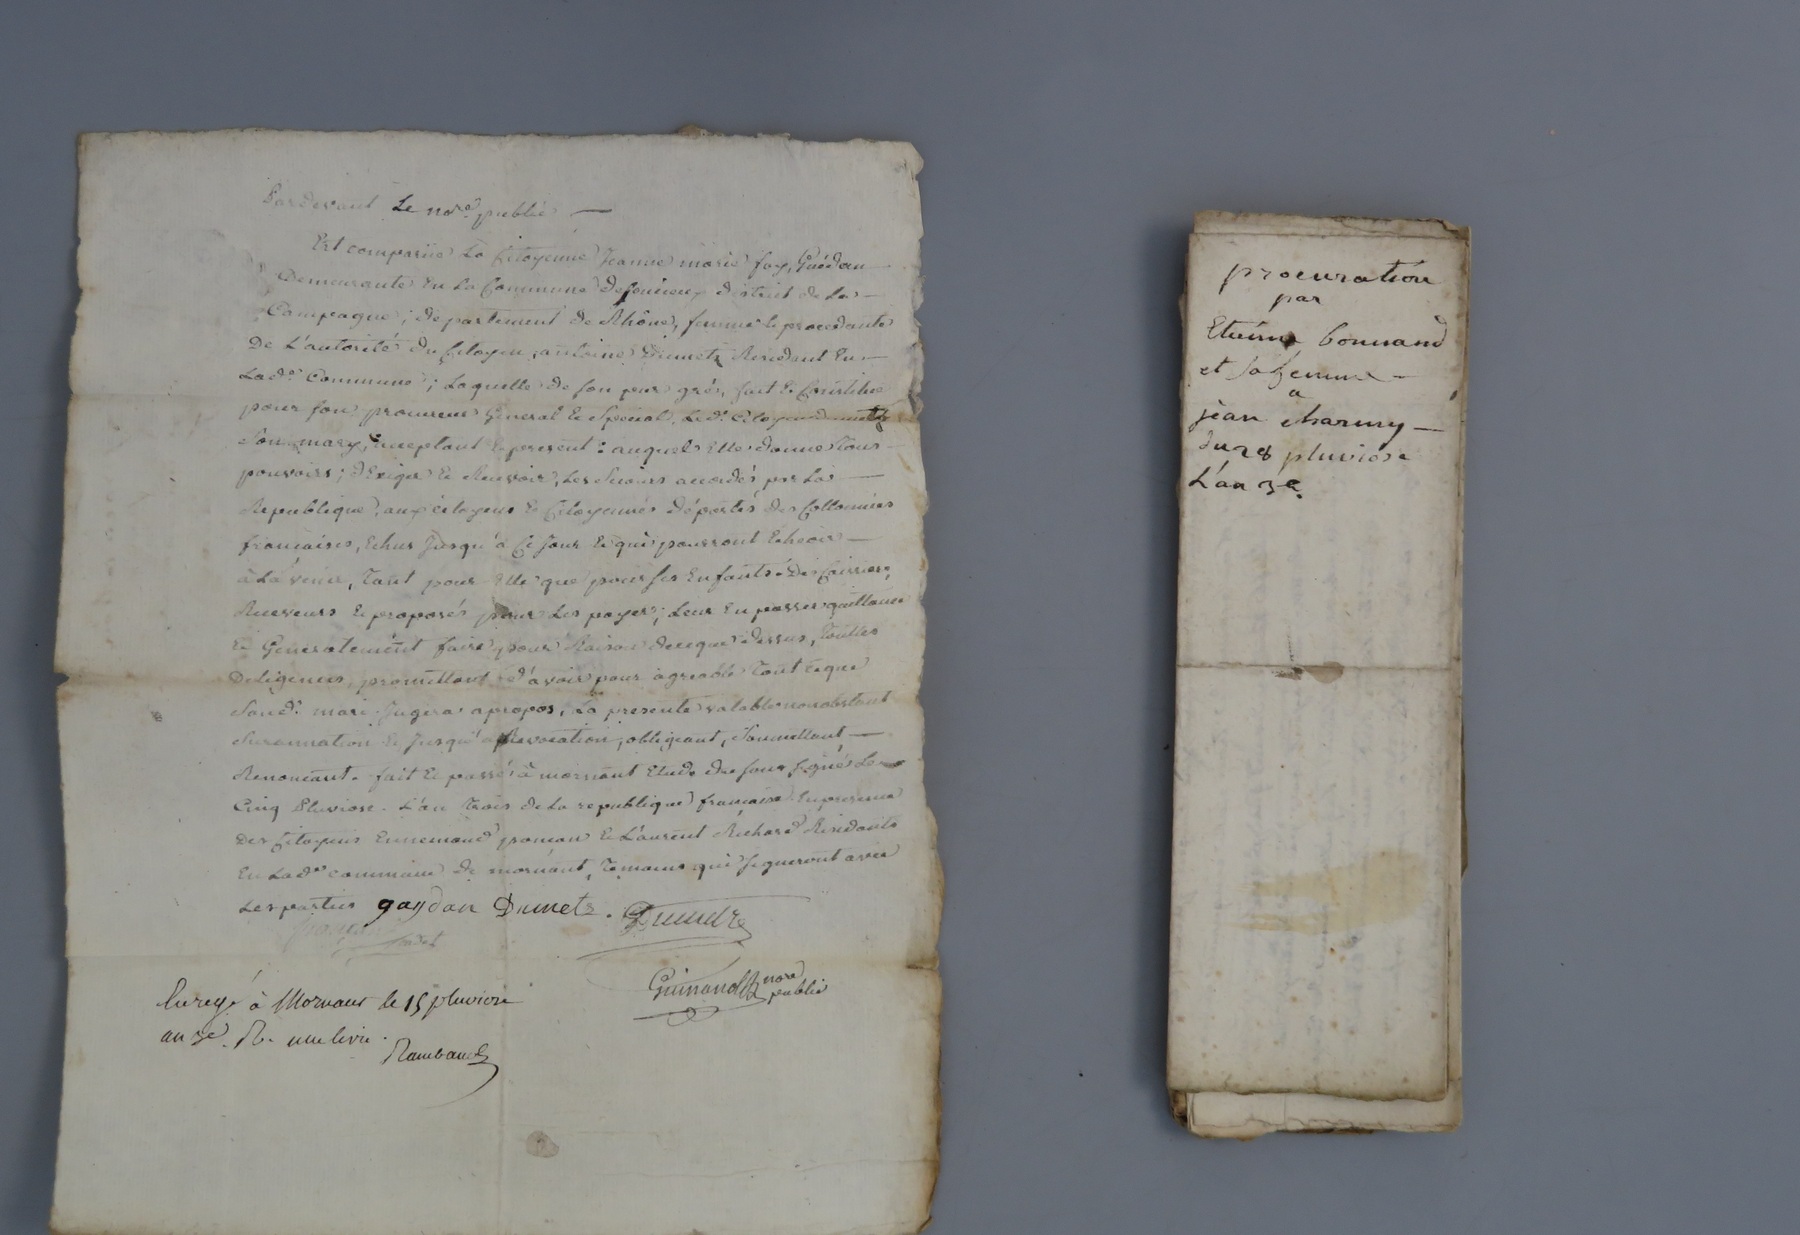 Pardevant Le nore. public —
Est comparüe La Citoyenne Jeanne marie fay,
Demeurante En La Commune district de La —
Campagne, département de Rhône, femme le procedante
De L'autorité du Citoyen, antoine Dumetz Residant En —
Lade. Commune; Laquelle de son pur gré, fait et Constitue
pour son procureur General et Special, Led. Citoyen dumetz
Son mary, acceptant le present: auquel Elle donne Tous
pouvoirs; d'Exiger et Recevoir, Les Secours accordés par La —
Republique, aux citoyens et Citoyennes déportés des Collonnies
francaises, Echus Jusqu'à Ce Jour et qui pourront Echeoir —
à La venir, Tant pour Elle que pour ses Enfants. Des Caissiers,
Receveurs et proposés pour Les payer; Leur En passer quittance
Et Generalement faire, pour Raison deceque dessus, Touttes
Deligences, promettant d'avoir pour agreable Tout ceque
Sond. mari Jugera apropos, La presente valable nonobstant
Surannation et Jusqu'a Revocation, obligeant, Soumettant —
Renonceant. fait et passé à mornant Etude du sous signé Le
Cinq Pluviose. L'an Trois de La republique francaise. En presence
Des Citoyens Ennemond et Laurent Richard Residants
En Lade. commune de mornant, Temoins qui Signeront avec
Les parties gaydan Dumetz.
Guinand nore
public
Enregé. à Mornant le 15 pluviose
an 3e. R. une livre.
Rambaud
procuration
par
Etienne Bonnand
et Sa femme —
a
jean charmy —
du 28 pluviose
L'an 3e.